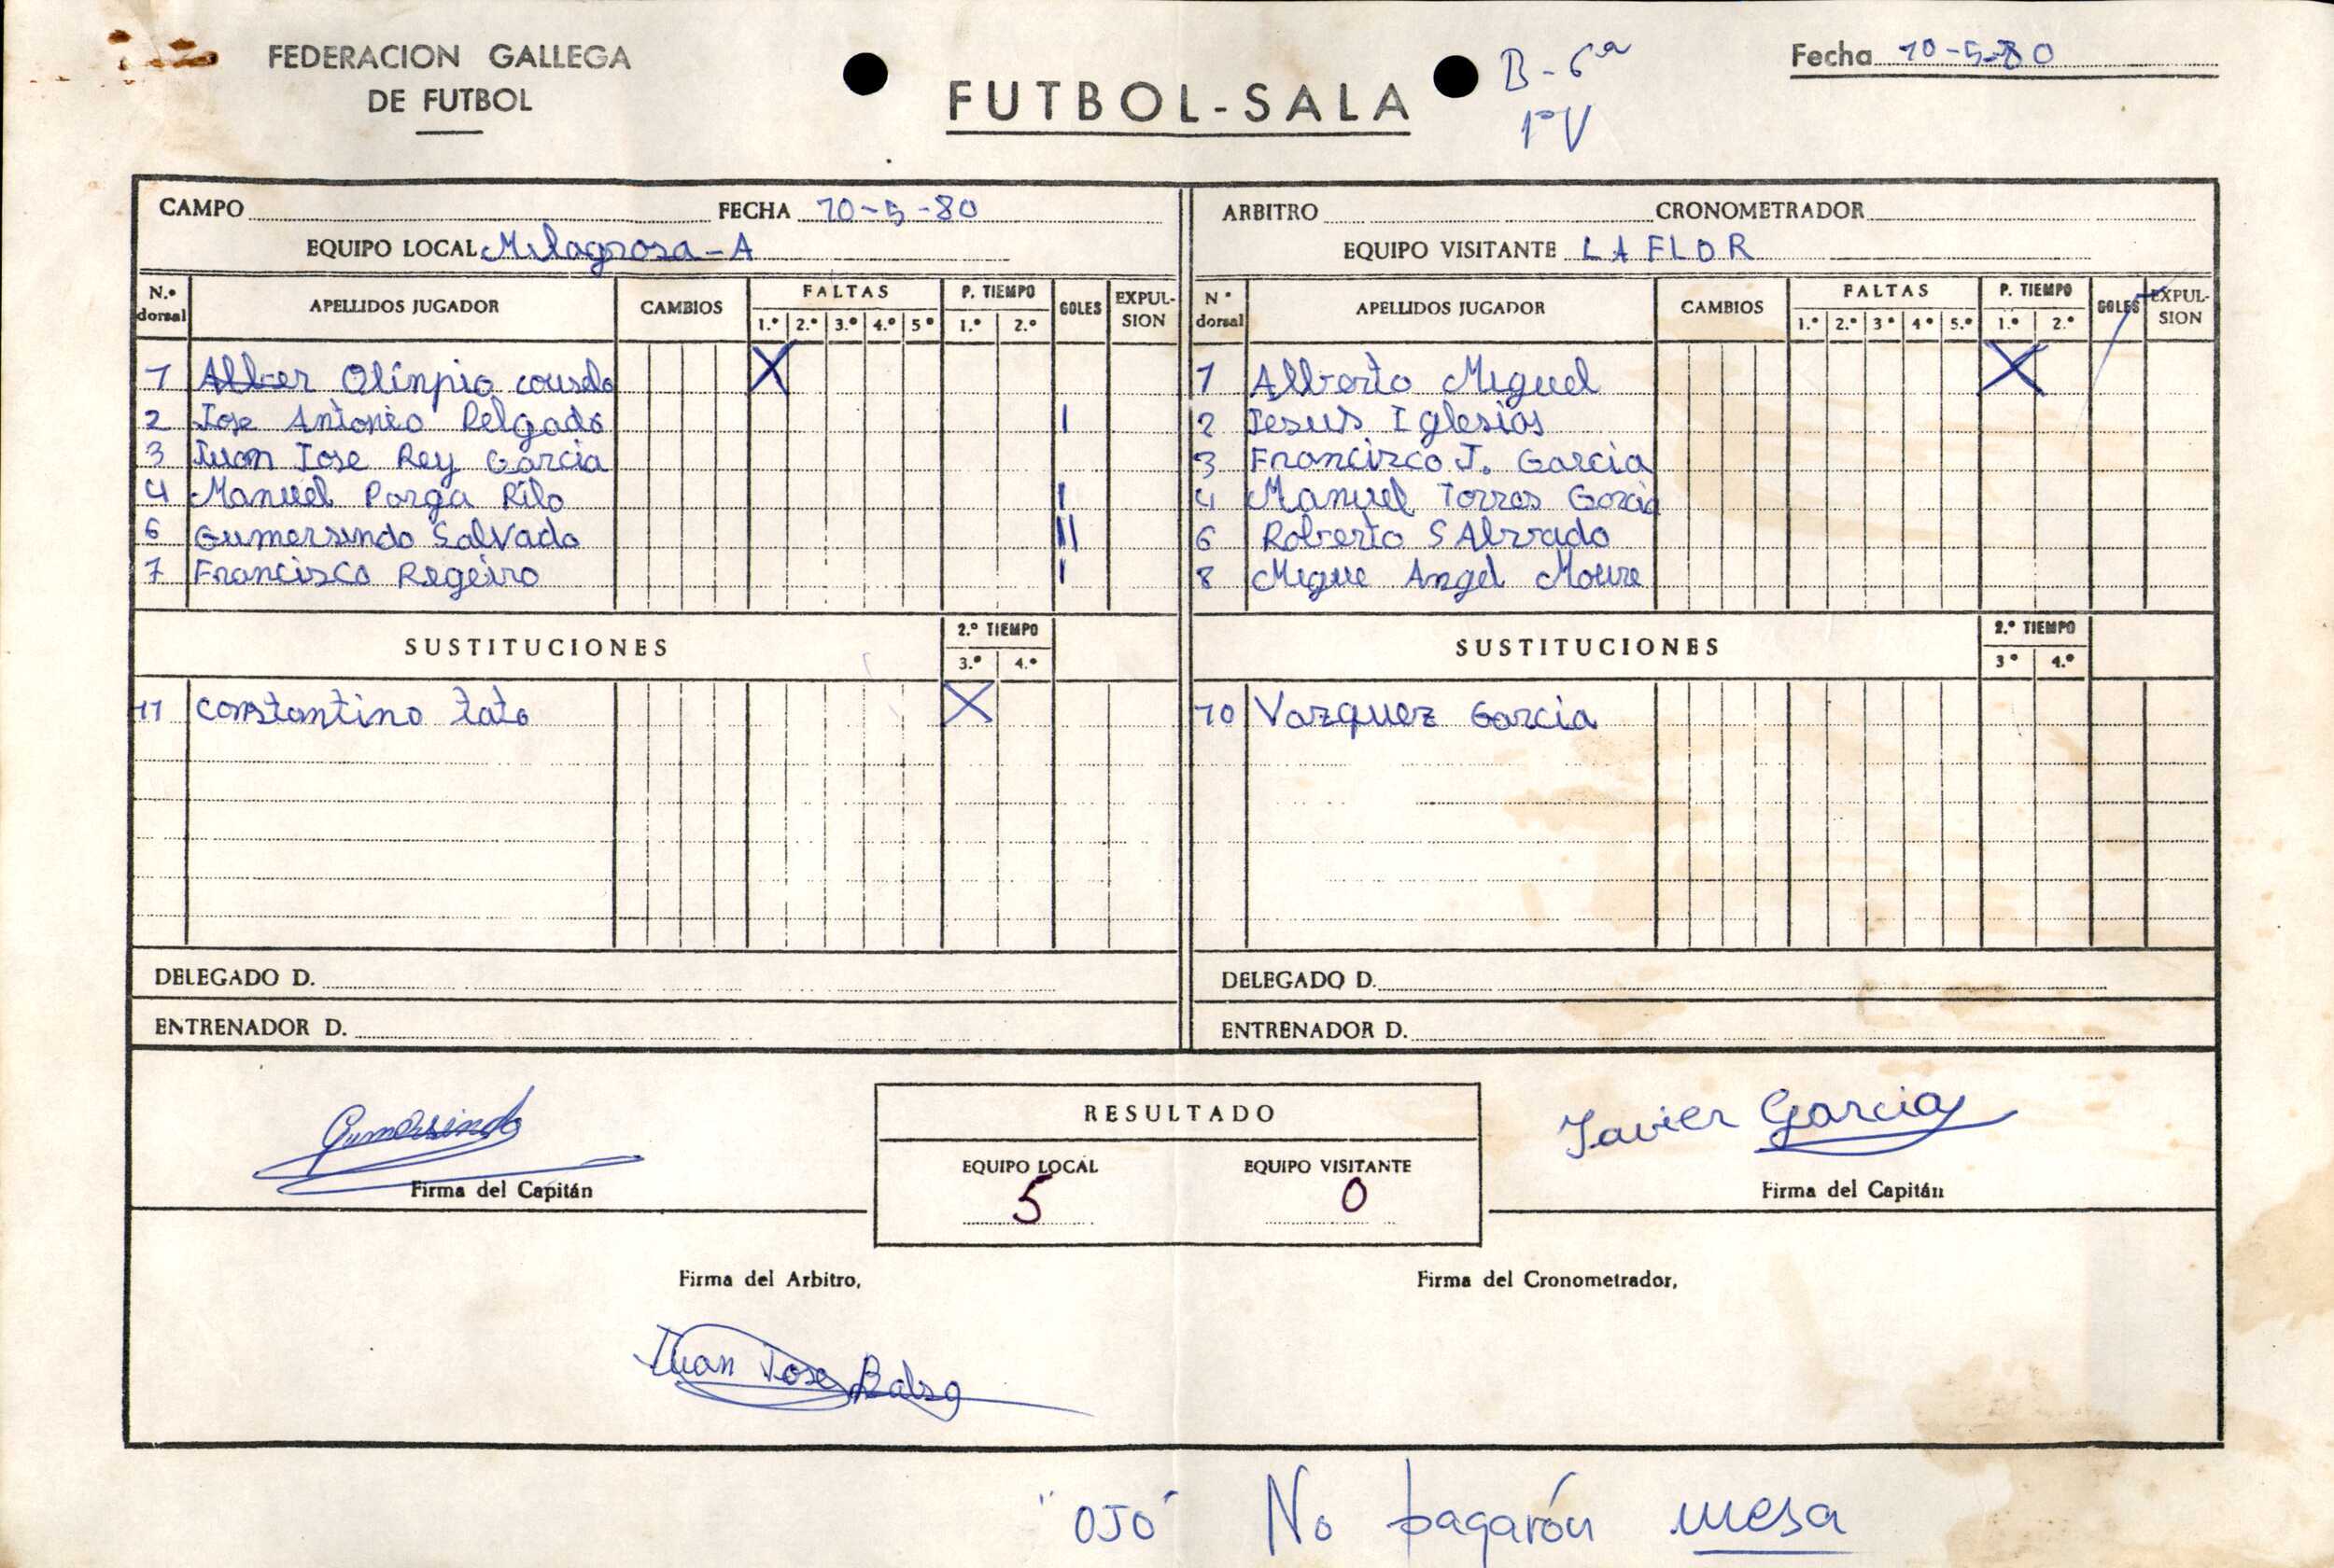 FEDERACION GALLEGA
DE FUTBOL
FUTBOL-SALA
B-6ª
1ºV
Fecha 10-5-80
CAMPO FECHA 10-5-80
EQUIPO LOCAL Milagrosa-A
ARBITRO CRONOMETRADOR
EQUIPO VISITANTE LA FLOR
N.º dorsal APELLIDOS JUGADOR CAMBIOS FALTAS 1.º 2.º 3.º 4.º 5º P. TIEMPO 1.º 2.º GOLES EXPULSION
1 Alber Olinpio couselo X
2 Jose Antonio Delgado I
3 Juan Jose Rey Garcia
4 Manuel Parga Rilo I
6 Gumersindo Salvado II
7 Francisco Regeiro I
SUSTITUCIONES 2.º TIEMPO 3.º 4.º
11 constantino tato X
DELEGADO D.
ENTRENADOR D.
N º dorsal APELLIDOS JUGADOR CAMBIOS FALTAS 1.º 2.º 3º 4º 5.º P. TIEMPO 1.º 2.º GOLES EXPULSION
1 Alberto Miguel X
2 Jesus Iglesias
3 Francisco J. Garcia
4 Manuel Torres Garcia
6 Roberto
8 Migue Angel Moure
SUSTITUCIONES 2.º TIEMPO 3º 4.º
10 Vazquez Garcia
DELEGADO D.
ENTRENADOR D.
Gumersindo
Firma del Capitán
RESULTADO
EQUIPO LOCAL EQUIPO VISITANTE
5 0
Javier Garcia
Firma del Capitán
Firma del Arbitro,
Juan Jose
Firma del Cronometrador,
"OJO" No pagarón mesa